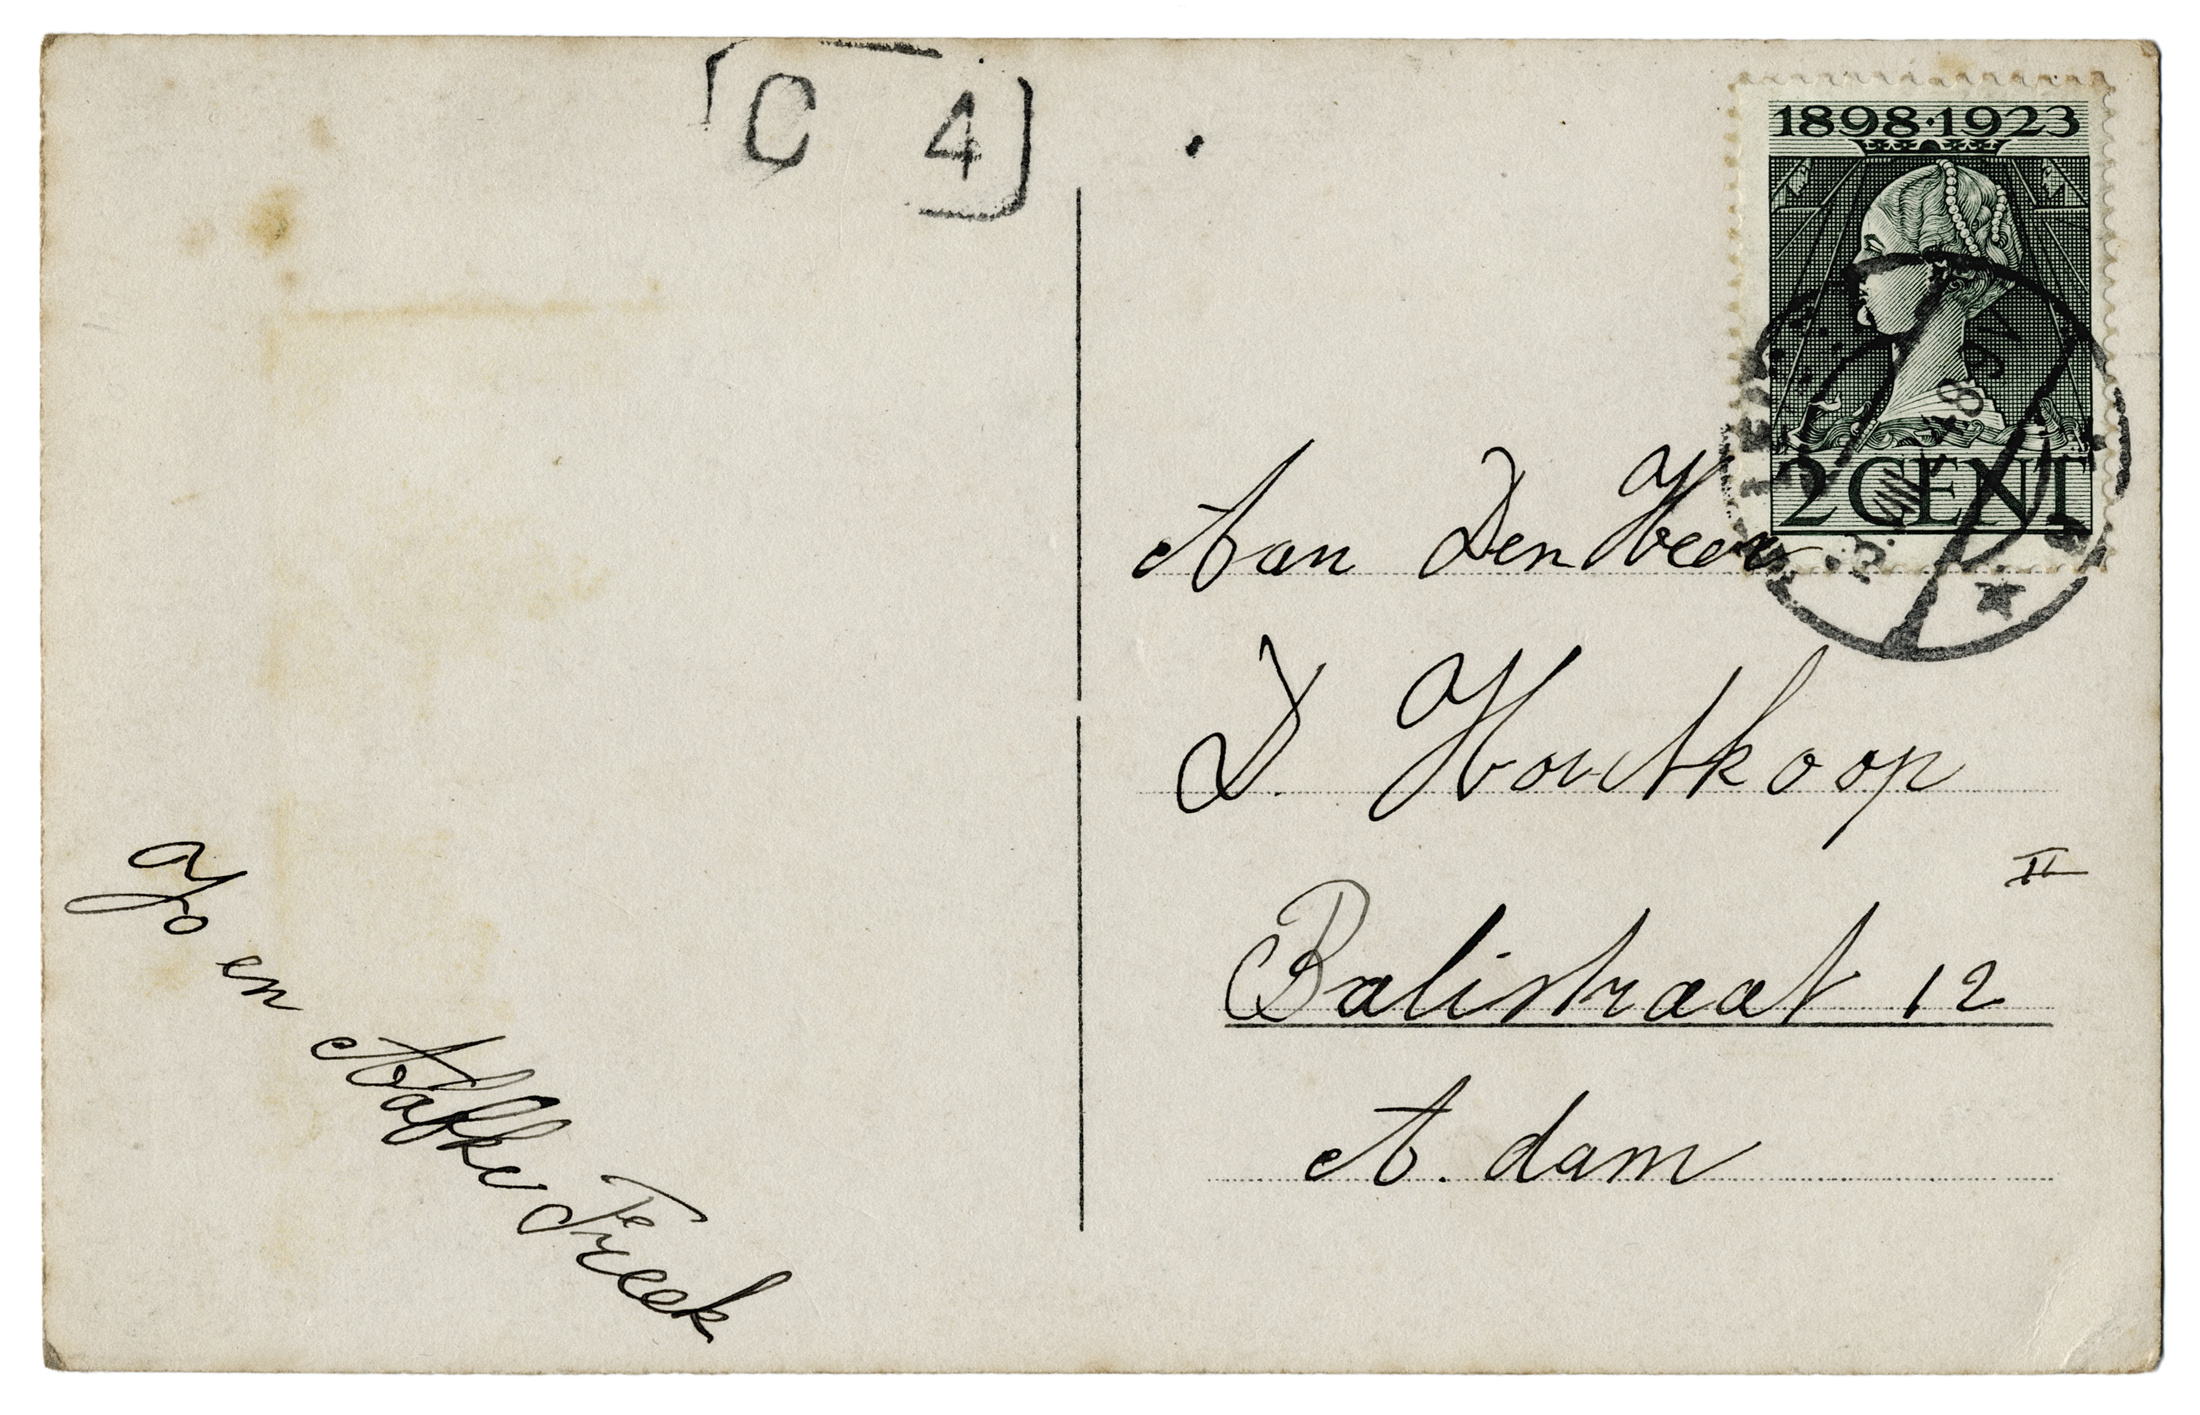 C 4
1898·1923
2 CENT
Aan Den Heer
D. Houtkoop
II
Balistraat 12
A. dam
Jo en
Freek